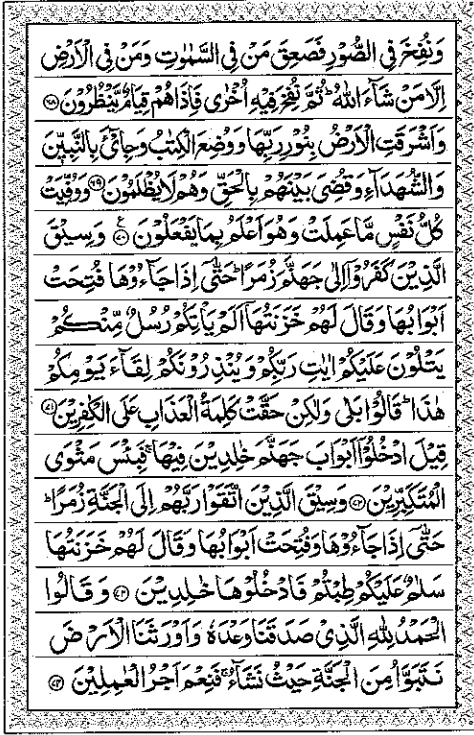 وَنُفِخَ فِی الصُّوۡرِ فَصَعِقَ مَنۡ فِی السَّمٰوٰتِ وَمَنۡ فِی الۡاَرۡضِ
اِلَّا مَنۡ شَآءَ اللّٰهُ ؕ ثُمَّ نُفِخَ فِیۡهِ اُخۡرٰی فَاِذَا هُمۡ قِیَامٌ یَّنۡظُرُوۡنَ ﴿۶۸﴾
وَاَشۡرَقَتِ الۡاَرۡضُ بِنُوۡرِ رَبِّهَا وَوُضِعَ الۡکِتٰبُ وَجِایۡٓءَ بِالنَّبِیّٖنَ
وَالشُّهَدَآءِ وَقُضِیَ بَیۡنَهُمۡ بِالۡحَقِّ وَهُمۡ لَا یُظۡلَمُوۡنَ ﴿۶۹﴾ وَوُفِّیَتۡ
کُلُّ نَفۡسٍ مَّا عَمِلَتۡ وَهُوَ اَعۡلَمُ بِمَا یَفۡعَلُوۡنَ ﴿۷۰﴾ وَسِیۡقَ
الَّذِیۡنَ کَفَرُوۡۤا اِلٰی جَهَنَّمَ زُمَرًا ؕ حَتّٰۤی اِذَا جَآءُوۡهَا فُتِحَتۡ
اَبۡوَابُهَا وَقَالَ لَهُمۡ خَزَنَتُهَاۤ اَلَمۡ یَاۡتِکُمۡ رُسُلٌ مِّنۡکُمۡ
یَتۡلُوۡنَ عَلَیۡکُمۡ اٰیٰتِ رَبِّکُمۡ وَیُنۡذِرُوۡنَکُمۡ لِقَآءَ یَوۡمِکُمۡ
هٰذَا ؕ قَالُوۡا بَلٰی وَلٰکِنۡ حَقَّتۡ کَلِمَةُ الۡعَذَابِ عَلَی الۡکٰفِرِیۡنَ ﴿۷۱﴾
قِیۡلَ ادۡخُلُوۡۤا اَبۡوَابَ جَهَنَّمَ خٰلِدِیۡنَ فِیۡهَا ۚ فَبِئۡسَ مَثۡوَی
الۡمُتَکَبِّرِیۡنَ ﴿۷۲﴾ وَسِیۡقَ الَّذِیۡنَ اتَّقَوۡا رَبَّهُمۡ اِلَی الۡجَنَّةِ زُمَرًا ؕ
حَتّٰۤی اِذَا جَآءُوۡهَا وَفُتِحَتۡ اَبۡوَابُهَا وَقَالَ لَهُمۡ خَزَنَتُهَا
سَلٰمٌ عَلَیۡکُمۡ طِبۡتُمۡ فَادۡخُلُوۡهَا خٰلِدِیۡنَ ﴿۷۳﴾ وَقَالُوا
الۡحَمۡدُ لِلّٰهِ الَّذِیۡ صَدَقَنَا وَعۡدَهٗ وَاَوۡرَثَنَا الۡاَرۡضَ
نَتَبَوَّاُ مِنَ الۡجَنَّةِ حَیۡثُ نَشَآءُ ۚ فَنِعۡمَ اَجۡرُ الۡعٰمِلِیۡنَ ﴿۷۴﴾